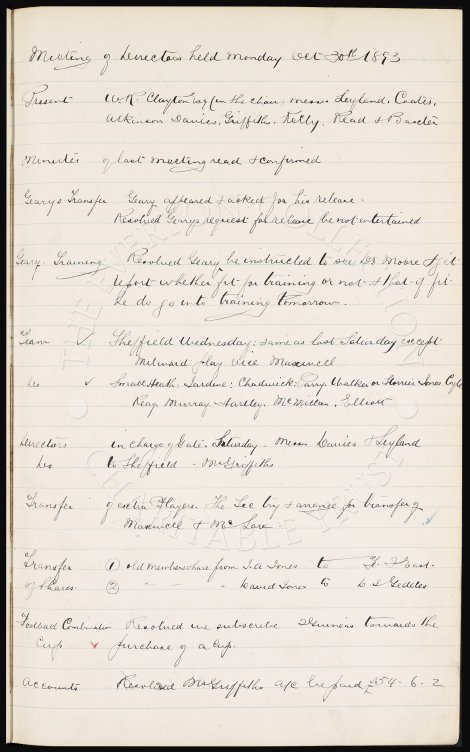 Meeting of Directors held Monday Oct 30th 1893
Present W.R. Clayton Esq (in the chair) Messrs Leyland, Coates,
Atkinson Davies, Griffiths, Kelly, Read & Baxter
Minutes of last meeting read & confirmed
Gearys Transfer Geary appeared & asked for his release.
Resolved Gearys request for release be not entertained
Geary. Training Resolved Geary be instructed to see Dr Moore & get
report whether fit for training or not & that if fit
he do go into training tomorrow.
"A" Team ✓ Sheffield Wednesday: same as last Saturday except
Milward play vice Maxwell
Do ✓ Small Heath: Jardine: Chadwick: Parry Walker or Storrier Jones
Reay Murray Hartley McMillan, Elliott
Directors in charge of Gate Saturday. Messrs Davies & Leyland
Do to Sheffield - Mr Griffiths
Transfer of extra Players. The Sec try & arrange for transfer of
Maxwell & McLaren
Transfer ① old members share from Jones to East.
of Shares ② " - - David Jones to Geddes
Football Combination Resolved we subscribe 2 Guineas towards the
Cup ✓ purchase of a Cup.
Accounts Resolved Mr Griffiths a/c be paid £54-6-2
THE EVERTON COLLECTION
CHARITABLE TRUST